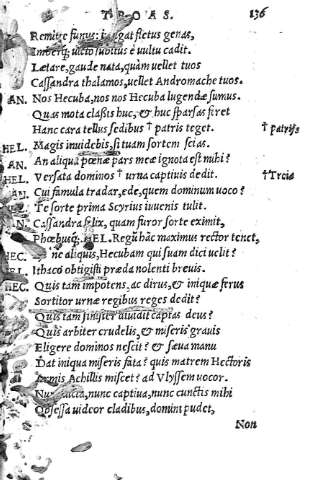 TROAS. 136
Remitte funus: rigat fletus genas,
Imberq; uicto subitus e uultu cadit.
Lætare, gaude nata, quàm uellet tuos
Cassandra thalamos, uellet Andromache tuos.
AN. Nos Hecuba, nos nos Hecuba lugendæ sumus.
Quas mota classis huc, & huc sparsas firet
Hanc cara tellus sedibus † patris teget. † patrijs
HEL. Magis inuidebis, si tuam sortem scias.
AN. An aliqua pœnæ pars meæ ignota est mihi?
HEL. Versata dominos † urna captiuis dedit. †Troiæ
AN. Cui famula tradar, ede, quem dominum uoco?
HEL. Te sorte prima Scyrius iuuenis tulit.
AN. Cassandra felix, quam furor sorte eximit,
Phœbusq;. HEL. Regũ hãc maximus rector tenet,
HEC. ne aliquis, Hecubam qui suam dici uelit?
HEL. Ithaco obtigisti præda nolenti breuis.
HEC. Quis tam impotens, ac dirus, & iniquæ ferus
Sortitor urnæ regibus reges dedit?
Quis tam sinister diuidit captas deus?
Quis arbiter crudelis, & miseris grauis
Eligere dominos nescit? & sæua manu
Dat iniqua miseris fata? quis matrem Hectoris
Armis Achillis miscet? ad Vlyssem uocor.
Nunc uicta, nunc captiua, nunc cunctis mihi
Obsessa uideor cladibus, domini pudet,
Non